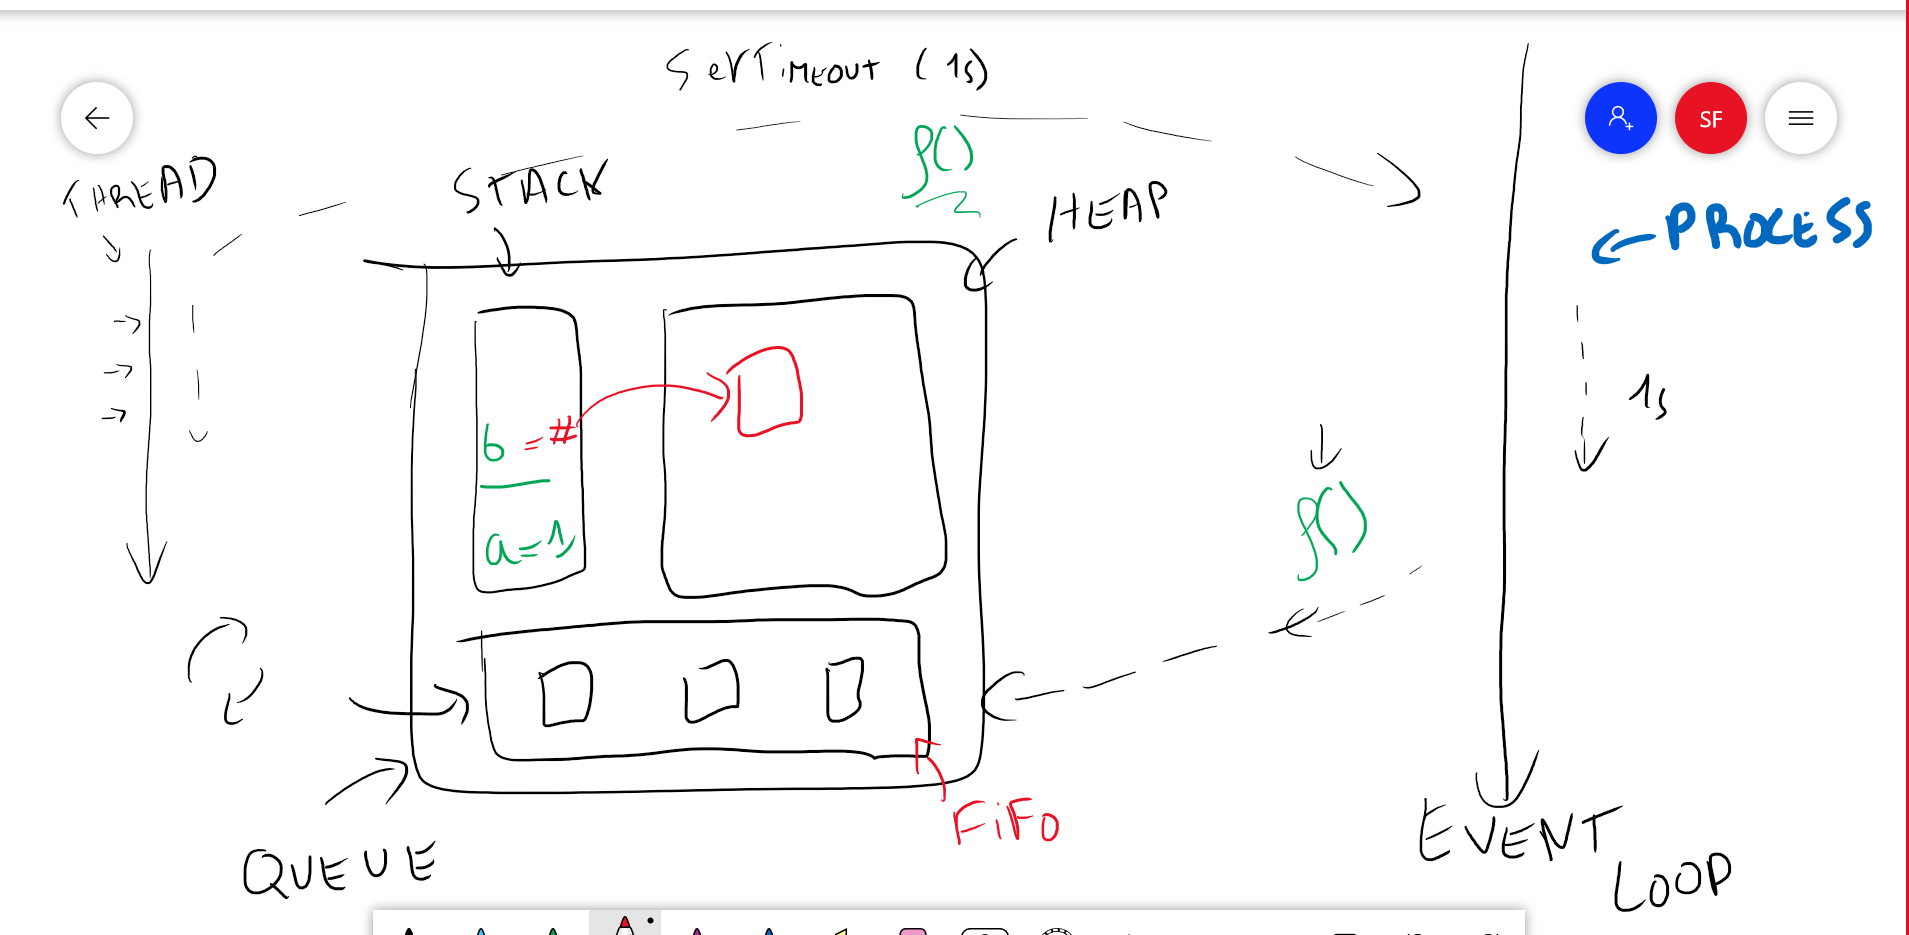 SETTIMEOUT (1s)
f()
SF
THREAD
STACK
HEAP
PROCESS
b = #
a = 1
1s
f()
FiFo
QUEUE
EVENT
LOOP